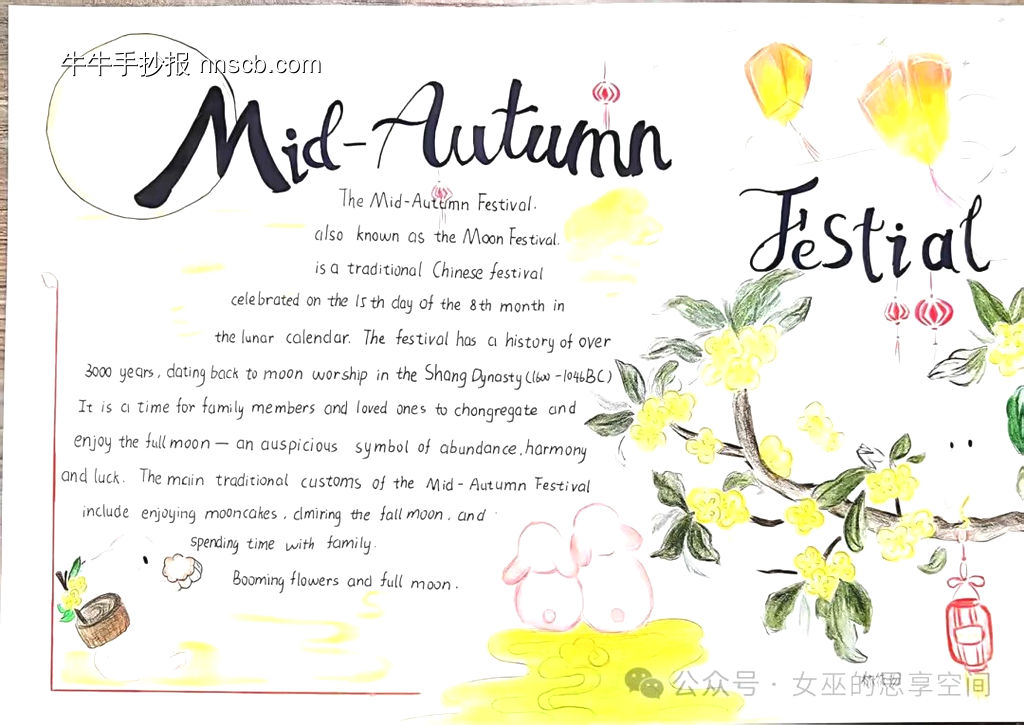 牛牛手抄报 nnscb.com
Mid-Autumn
Festial
The Mid-Autumn Festival.
also known as the Moon Festival.
is a traditional Chinese festival
celebrated on the 15th day of the 8th month in
the lunar calendar. The festival has a history of over
3000 years, dating back to moon worship in the Shang Dynasty (1600-1046BC)
It is a time for family members and loved ones to chongregate and
enjoy the full moon — an auspicious symbol of abundance, harmony
and luck. The main traditional customs of the Mid-Autumn Festival
include enjoying mooncakes, dmiring the fall moon, and
spending time with family.
Booming flowers and full moon.
公众号·女巫的思享空间